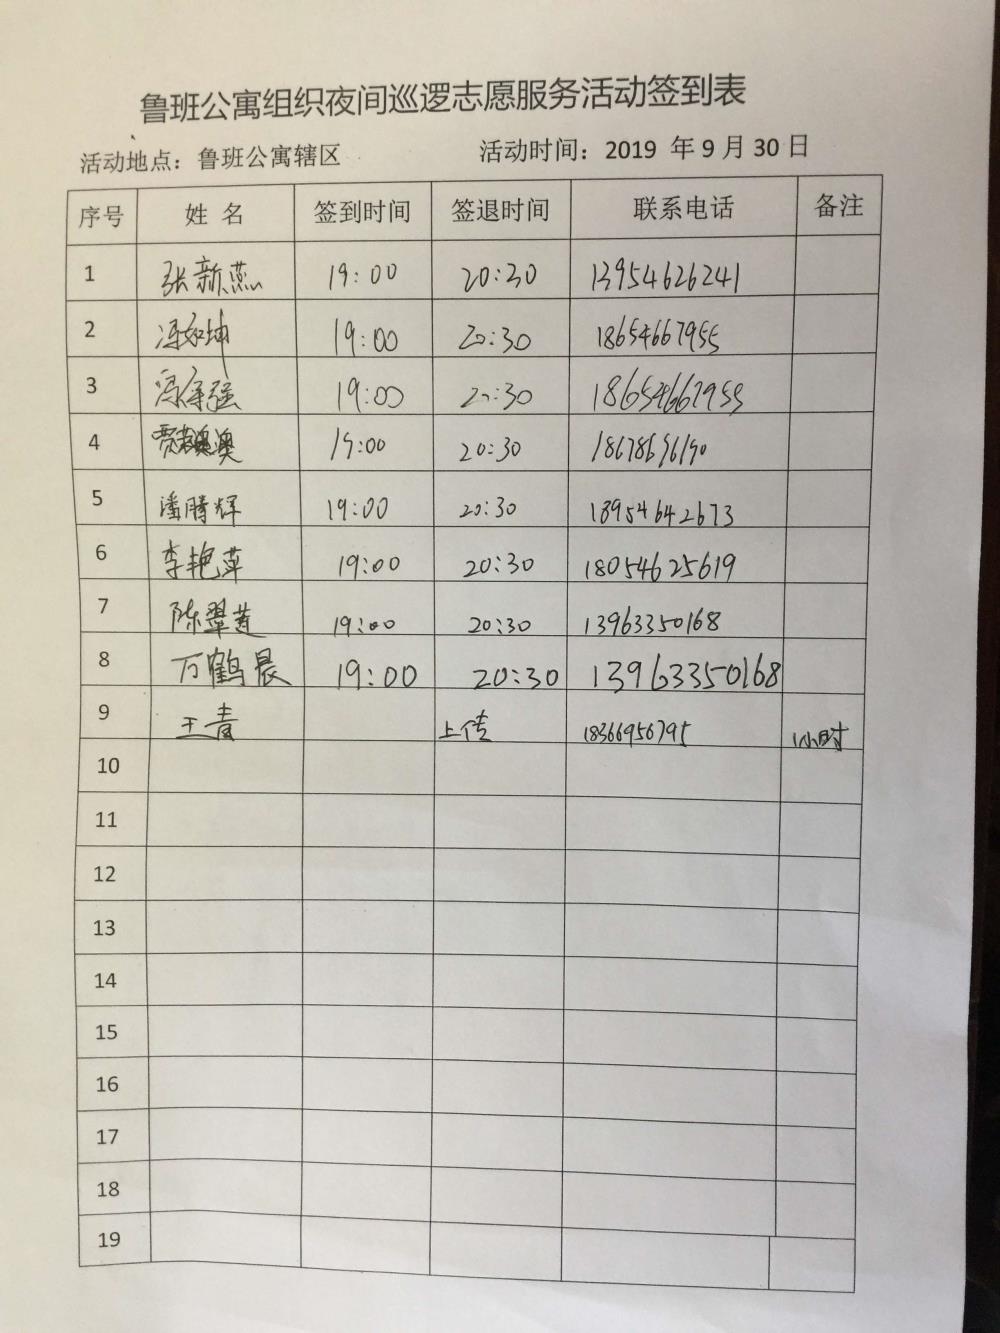 鲁班公寓组织夜间巡逻志愿服务活动签到表
活动地点：鲁班公寓辖区 活动时间：2019 年 9 月 30 日
序号 姓 名 签到时间 签退时间 联系电话 备注
1 张新燕 19:00 20:30 13954626241
2 冯 坤 19:00 20:30 18654667955
3 冯 强 19:00 20:30 18654667955
4 贾 澳 19:00 20:30 18678696190
5 潘腾辉 19:00 20:30 18954642673
6 李艳萍 19:00 20:30 18054625619
7 陈翠莲 19:00 20:30 13963350168
8 万鹤晨 19:00 20:30 13963350168
9 王青 上传 18366956795 1小时
10
11
12
13
14
15
16
17
18
19